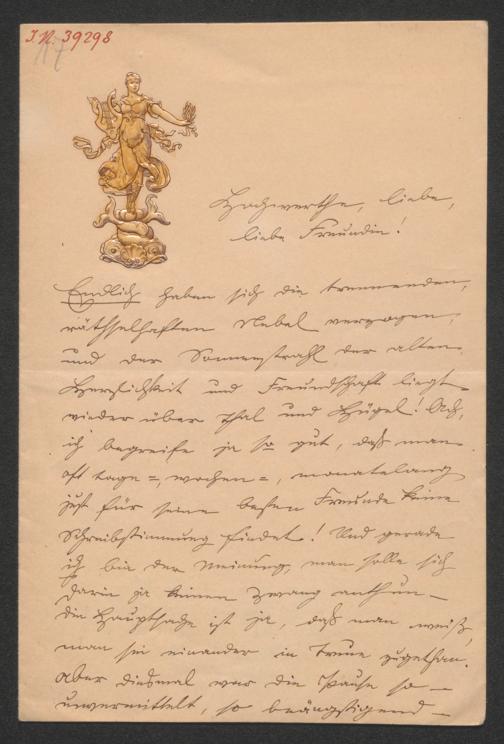 I.N. 39298
17
Hochwerthe, liebe,
liebe Freundin!
Endlich haben sich die trennenden,
räthselhaften Nebel verzogen,
und der Sonnenstrahl der alten
Herzlichkeit und Freundschaft liegt
wieder über Thal und Hügel! Ach,
ich begreife ja so gut, daß man
oft tage=, wochen=, monatelang
just für seine besten Freunde keine
Schreibstimmung findet! Und gerade
ich bin der Meinung, man solle sich
darin ja keinen Zwang anthun –
die Hauptsache ist ja, daß man weiß,
man sei einander in Treue zugethan.
Aber diesmal war die Pause so –
unvermittelt, so beängstigend –